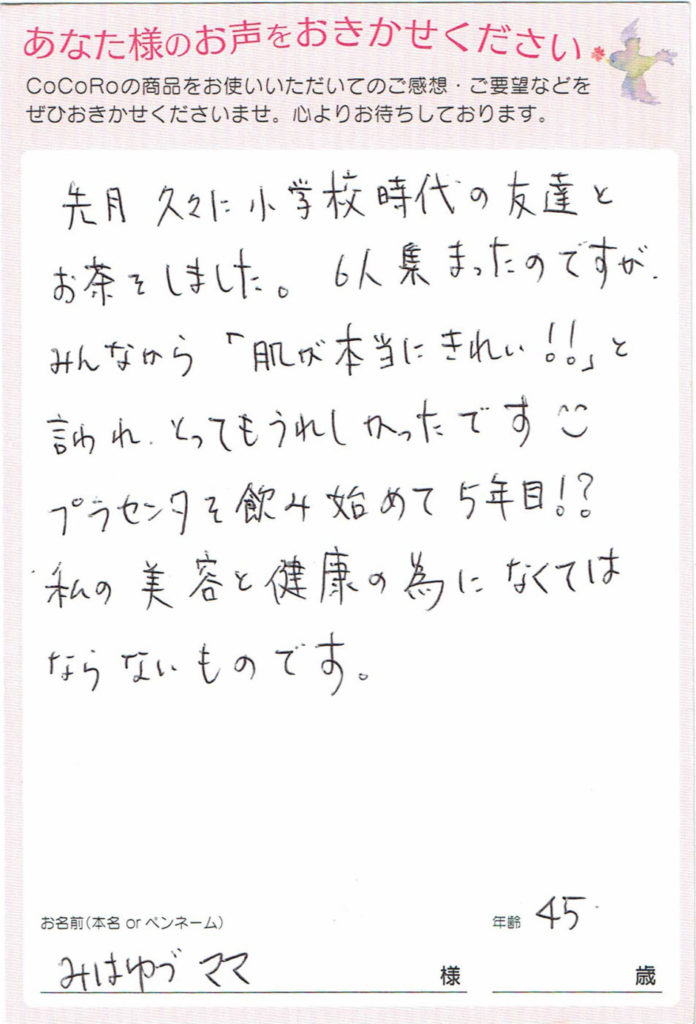 あなた様のお声をおきかせください
CoCoRoの商品をお使いいただいてのご感想・ご要望などを
ぜひおきかせくださいませ。心よりお待ちしております。
先月 久々に小学校時代の友達と
お茶をしました。 6人集まったのですが、
みんなから「肌が本当にきれい!!」と
言われ、とってもうれしかったです
プラセンタを飲み始めて5年目!?
私の美容と健康の為になくては
ならないものです。
お名前(本名 or ペンネーム)
みはゆづ ママ 様
年齢 45 歳